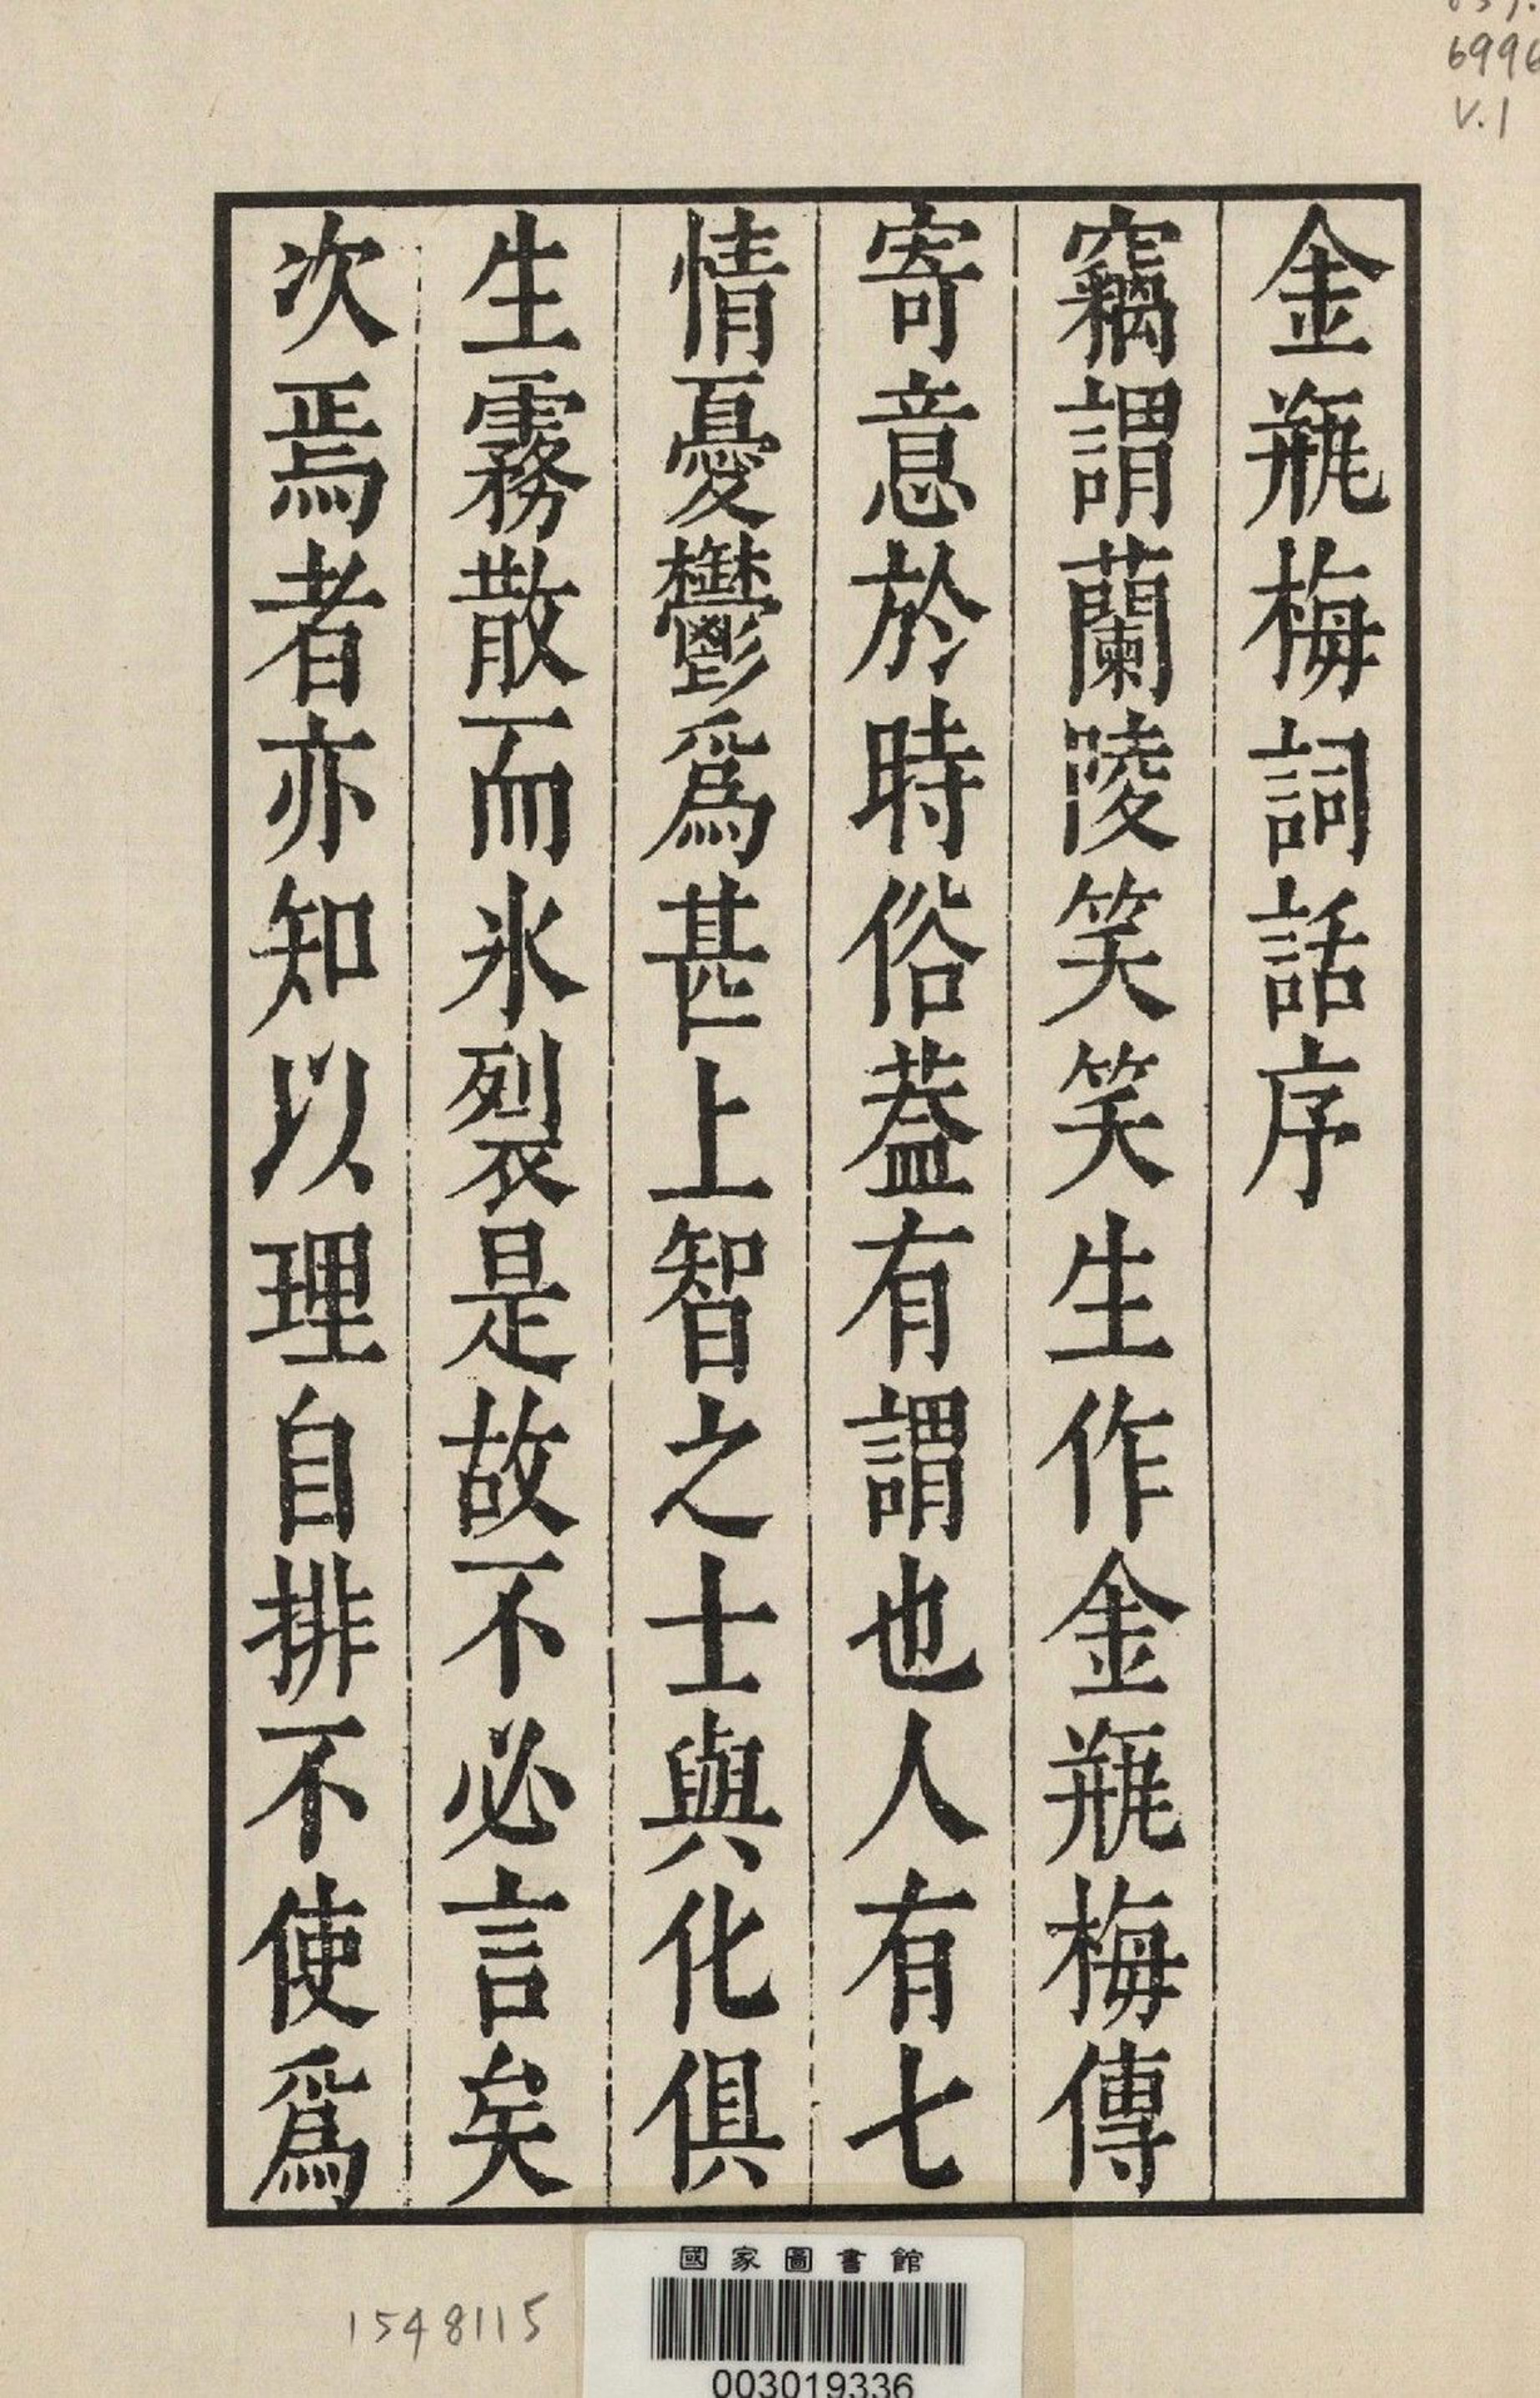 6996
V.1
金瓶梅詞話序
竊謂蘭陵笑笑生作金瓶梅傳
寄意於時俗葢有謂也人有七
情憂鬱爲甚上智之士與化俱
生霧散而氷裂是故不必言矣
次焉者亦知以理自排不使爲
國家圖書館
1548115
003019336